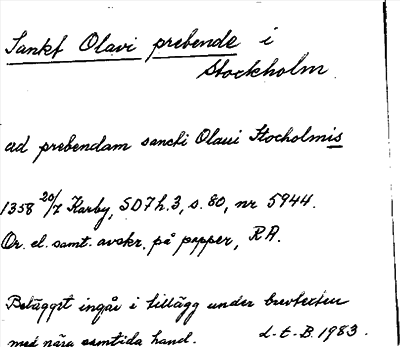 Sankt Olavi prebende i
Stockholm
ad prebendam sancti Olaui Stocholmis
1358 20/7 Karby, SD7 h.3, s. 80, nr 5944.
Or. el. samt. avskr. på papper, RA.
Belägget ingår i tillägg under brevtexten
med nära samtida hand. L-t-B. 1983.